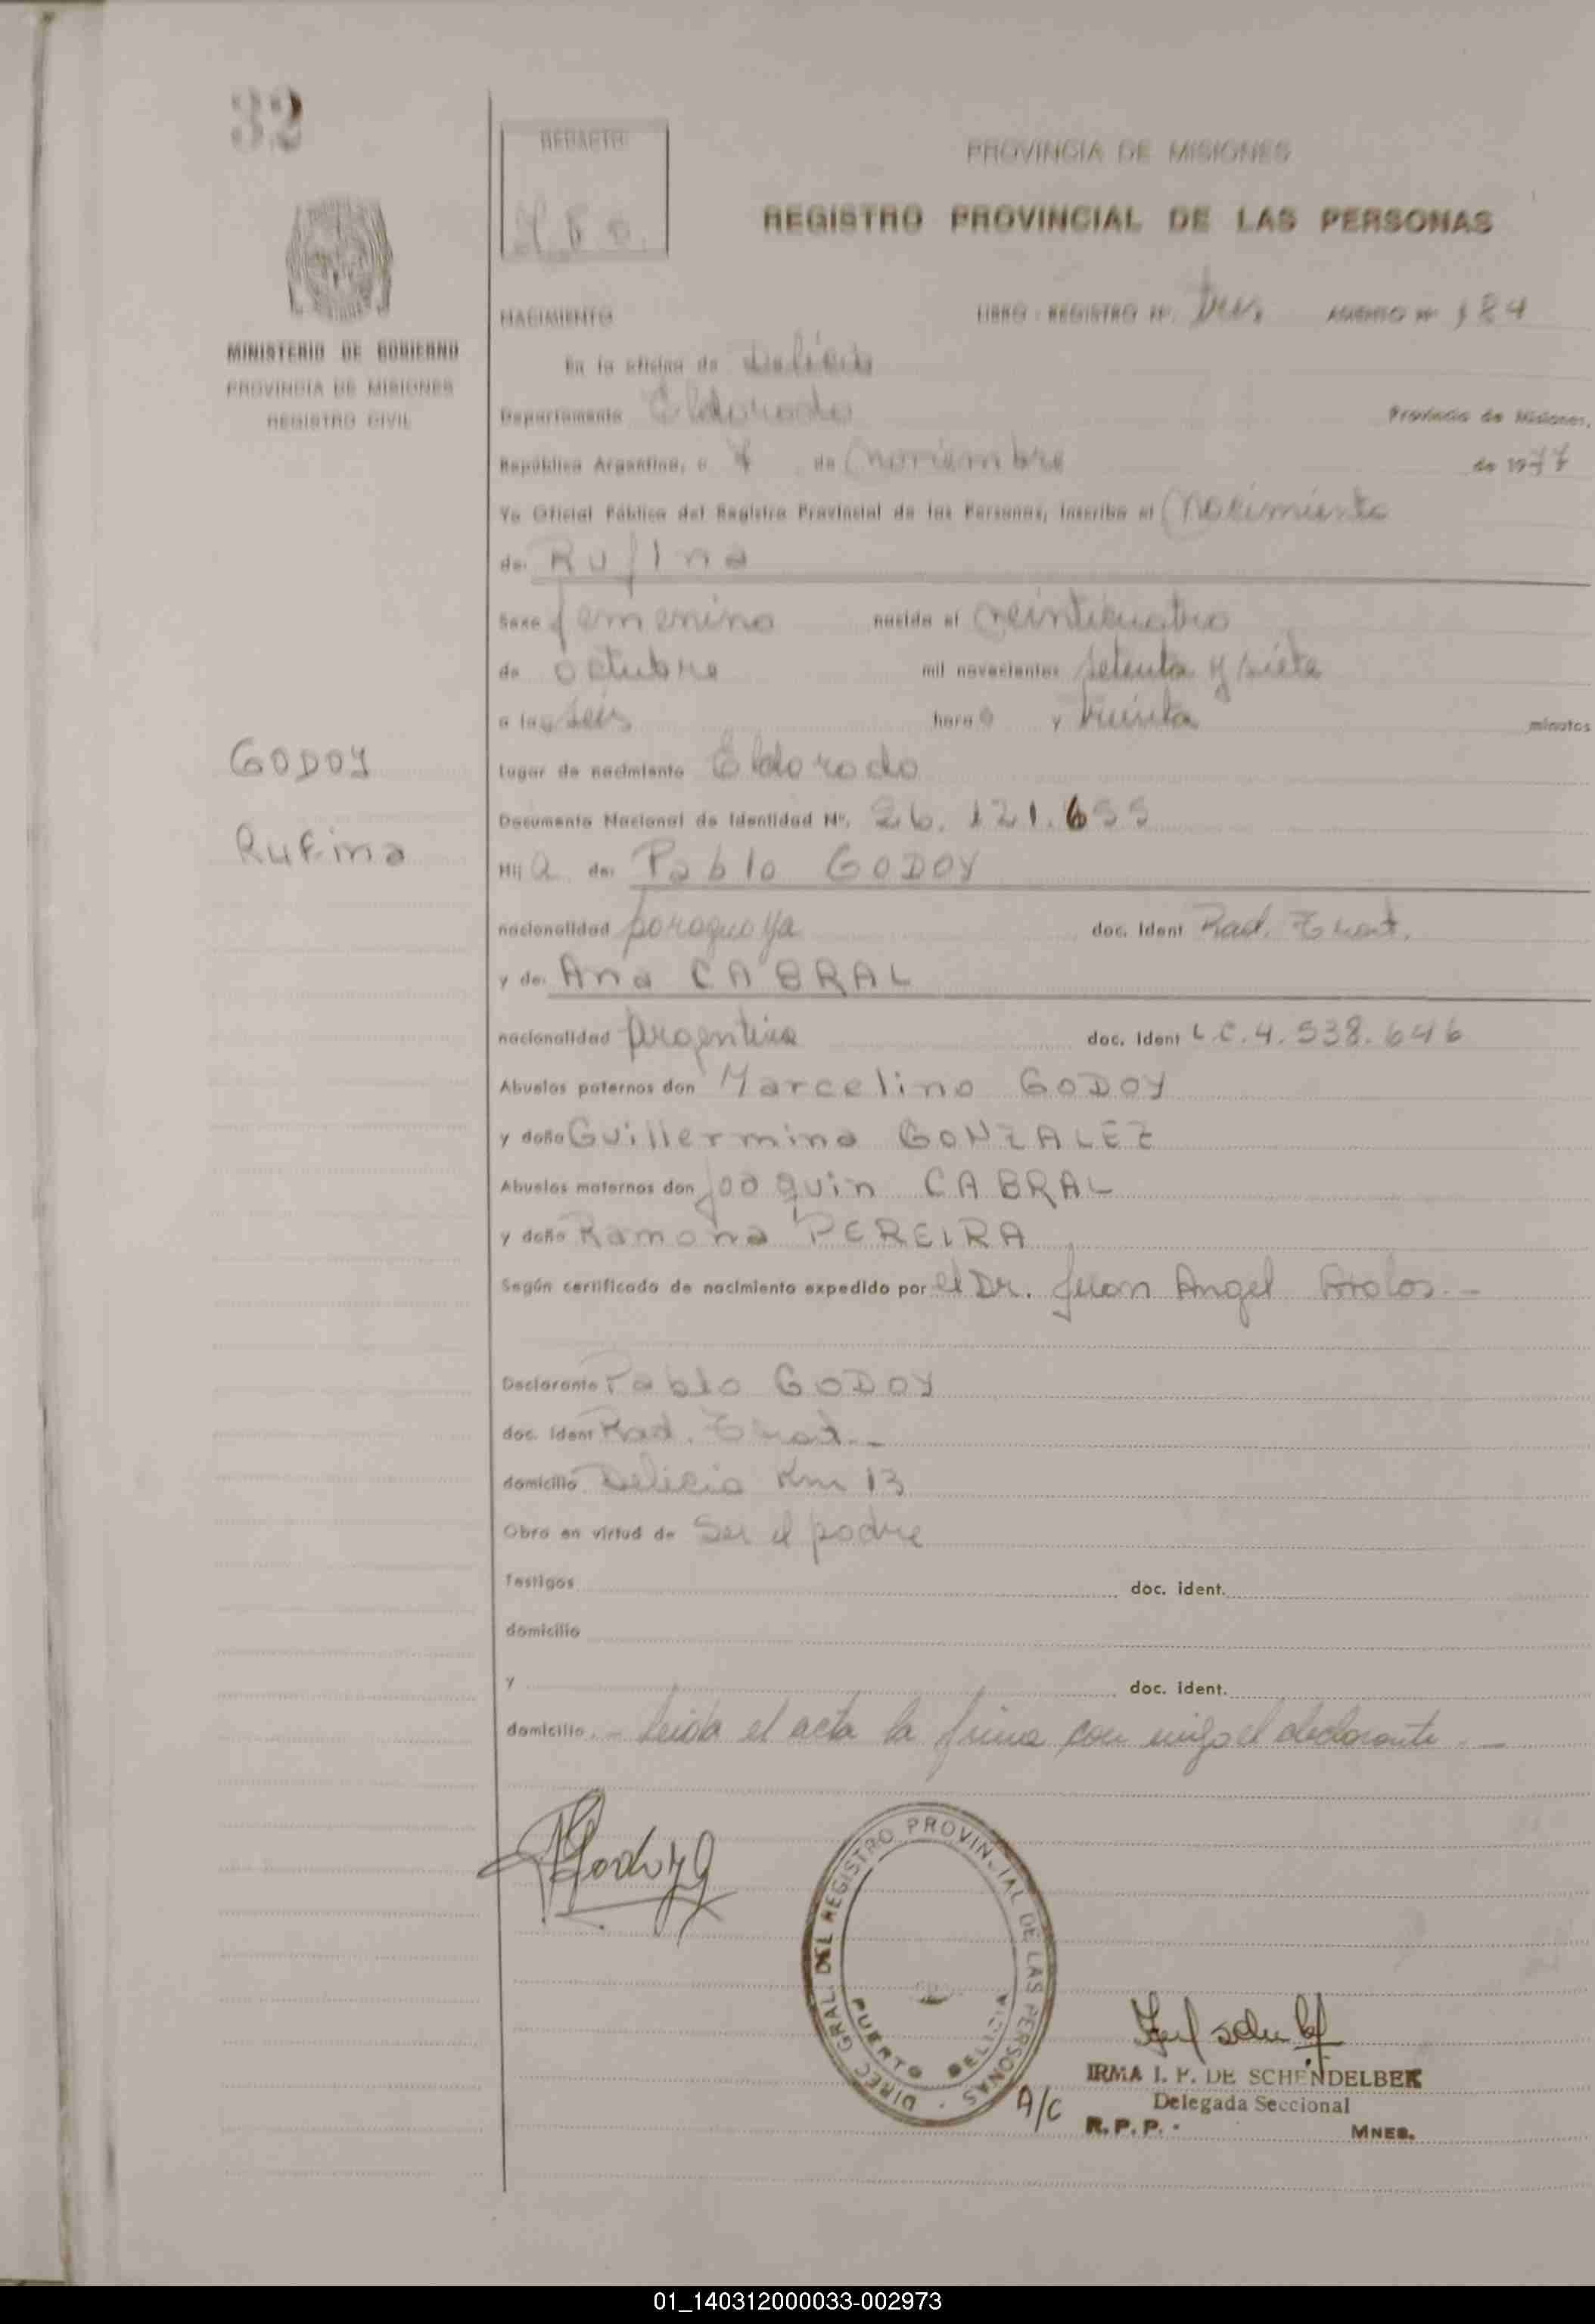 32
REPARTO
PROVINCIA DE MISIONES
REGISTRO PROVINCIAL DE LAS PERSONAS
NACIMIENTO LIBRO - REGISTRO Nº. ASIENTO Nº 184
MINISTERIO DE GOBIERNO
PROVINCIA DE MISIONES
REGISTRO CIVIL
En la oficina de Delicia
Departamento Eldorado Provincia de Misiones,
República Argentina, a 7 de noviembre de 1977
Yo Oficial Público del Registro Provincial de las Personas, inscribo el Nacimiento
de: Rufina
Sexo femenino nacida el veinticuatro
de octubre mil novecientos setenta y siete
a las seis hora y treinta minutos
GODOY
Rufina
Lugar de nacimiento Eldorado
Documento Nacional de Identidad Nº. 26.121.655
Hija de: Pablo GODOY
nacionalidad paraguaya doc. ident Rad.
y de: Ana CABRAL
nacionalidad Argentina doc. ident L.C. 4.538.646
Abuelos paternos don Marcelino GODOY
y doña Guillermina GONZALEZ
Abuelos maternos don Joaquin CABRAL
y doña Ramona PEREIRA
Según certificado de nacimiento expedido por el Dr. Juan Angel
Declarante Pablo GODOY
doc. ident Rad.
domicilio Delicia Km 13
Obra en virtud de Ser el padre
Testigos doc. ident.
domicilio
y doc. ident.
domicilio. - Leida el acta la firma con migo el declarante. -
DIREC. GRAL. DEL REGISTRO PROVINCIAL DE LAS PERSONAS
PUERTO DELICIA
A/C
IRMA I. F. DE SCHENDELBEK
Delegada Seccional
R.P.P. - MNES.
01_140312000033-002973